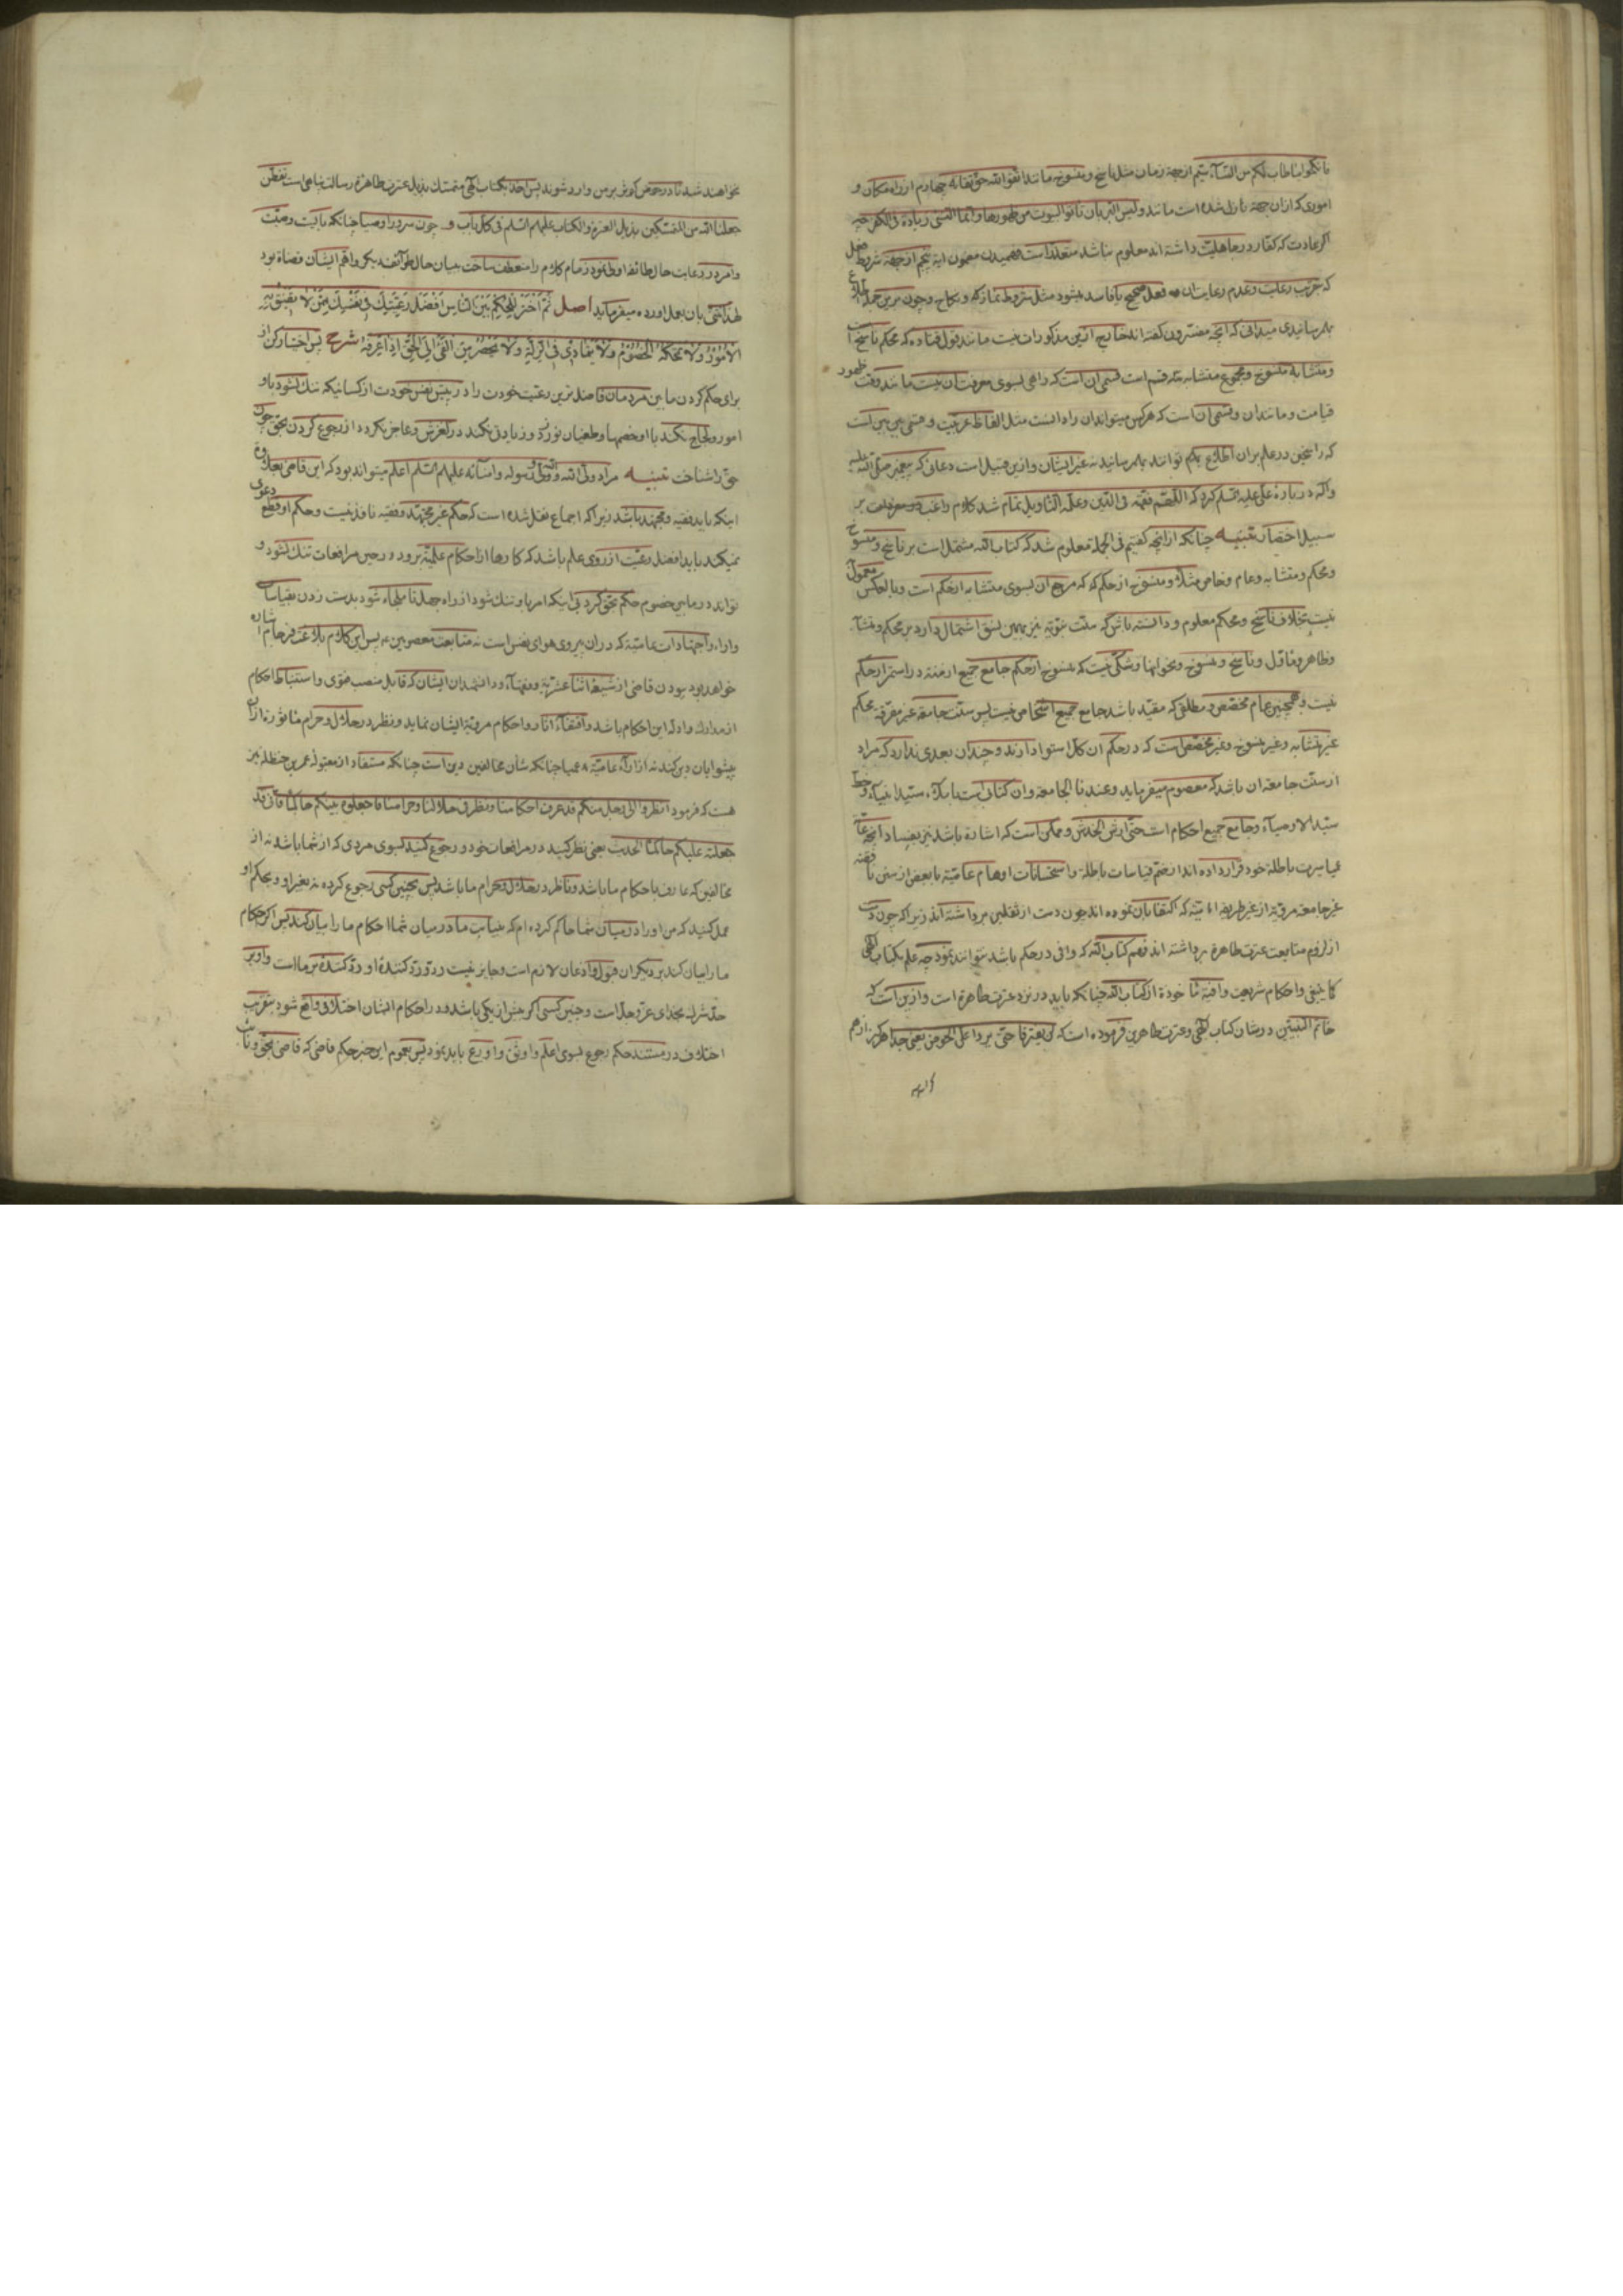 فانکحوا ما طاب لکم من النسآء سیم از جهة زمان مثل ناسخ و منسوخ مانند اتقوا الله حق تقاته چهارم از راه مکان و
اموری که ازان جهة نازل شده است مانند و لیس البر بان تاتوا البیوت من ظهورها و انما النسی زیادة فی الکفر چه
اگر عادت که کفار در جاهلیت داشته اند معلوم نباشد متعذر است فهمیدن مضمون ایه پنجم از جهة شروط فعل
که بترتب رعایت و عدم رعایت ان فعل صحیح یا فاسد میشود مثل شروط نماز و نکاح و چون برین جمله اطلاع
بهم رسانیدی میدانی که انچه مفسرون گفته اند خارج ازین مذکورات نیست مانند قول قتاده که محکم ناسخ است
و متشابه منسوخ و مجموع متشابه سه قسم است قسمی ان است که راهی بسوی معرفت ان نیست مانند وقت ظهور
قیامت و مانند ان و قسمی ان است که هر کس میتواند ان را دانست مثل الفاظ عربیت و قسمی بین بین است
که راسخین در علم بران اطلاع بهم توانند بهم رسانید نه غیر ایشان و ازین قبیل است دعائی که پیغمبر صلی الله علیه
و اله در باره علی علیه السلم کرد که اللهم فقهه فی الدین و علمه التاویل تمام شد کلام راغب بر
سبیل اختصار تنبیه چنانکه از انچه گفتیم فی الجملة معلوم شد که کتاب الله مشتمل است بر ناسخ و منسوخ
و محکم و متشابه و عام و خاص مثلا و منسوخ از حکم که مرجع ان بسوی متشابه از حکم است و بالعکس معمول
نیست بخلاف ناسخ و محکم معلوم و دانسته باش که سنت نبویه نیز بهمین نسق اشتمال دارد بر محکم و متشابه
و ظاهر و ماول و ناسخ و منسوخ و نحو اینها و شکی نیست که منسوخ از حکم جامع جمیع ازمنه در استمرار حکم
نیست و همچنین عام مخصص و مطلقی که مقید باشد جامع جمیع اشخاص نیست پس سنت جامعه غیر مفرقه محکم
غیر متشابه و غیر منسوخه و غیر مخصص است که در حکم ان کل استوا دارند و چندان بعدی ندارد که مراد
از سنت جامعه ان باشد که معصوم میفرماید و عندنا الجامعه و ان کتابی است باملاء سید انبیآء و خط
سید الاوصیآء و جامع جمیع احکام است حتی ارش الخدش و ممکن است که اشاره باشد نیز بفساد انچه عامه
عمیا سیرت باطله خود قرار داده اند از ضم قیاسات باطله و استحسانات اوهام عامیه با بعضی از سنن نا
غیر جامعه مرویه از غیر طریقه امامیه که اکتفا بان نموده اند چون دست از ثقلین برداشته اند زیرا که چون دست
از لزوم متابعت عترت طاهره برداشته اند فهم کتاب الله که وافی در حکم باشد نتوانند نمود چه علم بکتاب الهی
کما ینبغی و احکام شریعت وافیه ماخوذه از کتاب الله چنانکه باید در نزد عترت طاهره است و ازین است که
خاتم النبیین در شان کتاب الهی و عترت طاهرین فرموده است که لن یفترقا حتی یردا علی الحوض یعنی جدا هرگز از هم
نخواهند شد تا در حوض کوثر بر من وارد شوند پس احد بکتاب الهی متمسک بذیل عترت طاهره رسالت پناهی است
جعلنا الله من المتمسکین بذیل العترة و الکتاب علیهم السلم فی کل باب و چون سرور اوصیا چنانکه بایست وصیت
و امر در رعایت حال طائفه اولی نمود زمام کلام را منعطف ساخت به بیان حال طوآئف دیگر و اهم ایشان قضاة بود
لهذا بان بعد اورده میفرماید اصل ثم اختر للحکم بین الناس افضل رعیتک فی نفسک ممن لا تضیق به
الامور و لا تمحکه الخصوم و لا یتمادی فی الزلة و لا یحصر من الفئ الی الحق اذا عرفه شرح پس اختیار کن از
برای حکم کردن مابین مردمان فاضل ترین رعیت خودت را در پیش نفس خودت از کسانیکه تنک نشود باو
امور و لجاج نکند با او خصمها و طغیان نورزد و زیادتی نکند در لغزش و عاجز نکردد از رجوع کردن بحق چون
حق را شناخت تنبیه مراد ولی الله و ولی رسوله و امنائه علیهم السلم اعلم میتواند بود که این قاضی بعلاوه
اینکه باید فقیه و مجتهد باشد زیرا که اجماع نقل شده است که حکم غیر مجتهد و فقیه نافذ نیست و حکم او قطع دعوی
نمیکند باید افضل رعیت از روی علم باشد که کارها از احکام علمیه برود و در حین مرافعات تنک نشود و
تواند در مابین خصوم حکم بحق کرد بی اینکه امر باو تنک شود از راه جهل تا ملجاء شود بدست زدن بقیاسات
و اراء و اجتهادات عامیه که در ان پیروی هوای نفس است نه متابعت معصومین ع پس این کلام بلاغت فرجام اشاره
خواهد بود ببودن قاضی از شیعه اثنا عشریه و فقهآء و دانشمندان ایشان که قابل منصب فتوی و استنباط احکام
از مدارک و ادله این احکام باشد و اقتفآء اثار و احکام مرویة ایشان نماید و نظر در حلال و حرام ماثوره از ان
پیشوایان دین کند نه از ارآء عامیه عمیا چنانکه شان مخالفین دین است چنانکه مستفاد از مقبوله عمر بن حنظله نیز
هست که فرمود انظروا الی رجل منکم قد عرف احکامنا و نظر فی حلالنا و حرامنا فاجعلوه بینکم حاکما فانی قد
جعلته علیکم حاکما الحدیث یعنی نظر کنید در مرافعات خود و رجوع کنید بسوی مردی که از شما باشد نه از
مخالفین که عارف باحکام ما باشد و ناظر در حلال و حرام ما باشد پس بچنین کسی رجوع کرده نه بغیر او و بحکم او
عمل کنید که من او را در میان شما حاکم کرده ام که به نیابت ما در میان شما احکام ما را بیان کند پس اگر حکام
ما را بیان کند بر دیگران قبول و اذعان لازم است و جایز نیست رد و رد کنندۀ او رد کنندۀ بر ما است و او بر
حد شرک بخدای عز و جل است و چنین کسی اگر بیش از یکی باشد و در احکام ایشان اختلافی واقع شود بتقریب
اختلاف در مستند حکم رجوع بسوی اعلم و اوثق و اورع باید نمود پس بعموم این خبر حکم قاضی که قاضی بحق و نایب